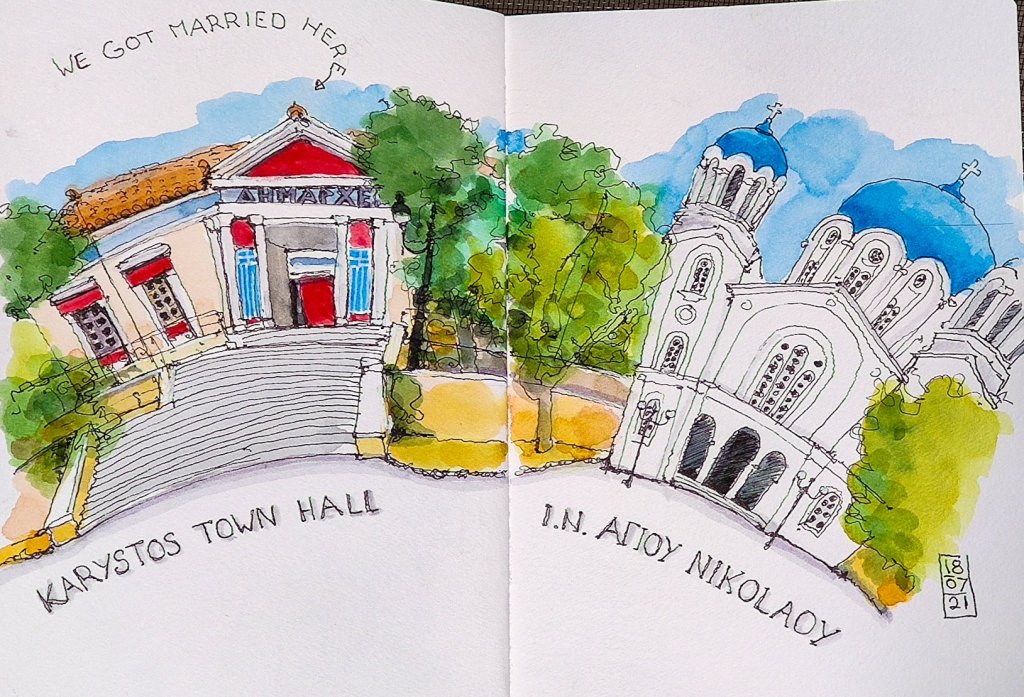 WE GOT MARRIED HERE
ΔΗΜΑΡΧΕ
KARYSTOS TOWN HALL
I.N. ΑΓΙΟΥ ΝΙΚΟΛΑΟΥ
18
07
21